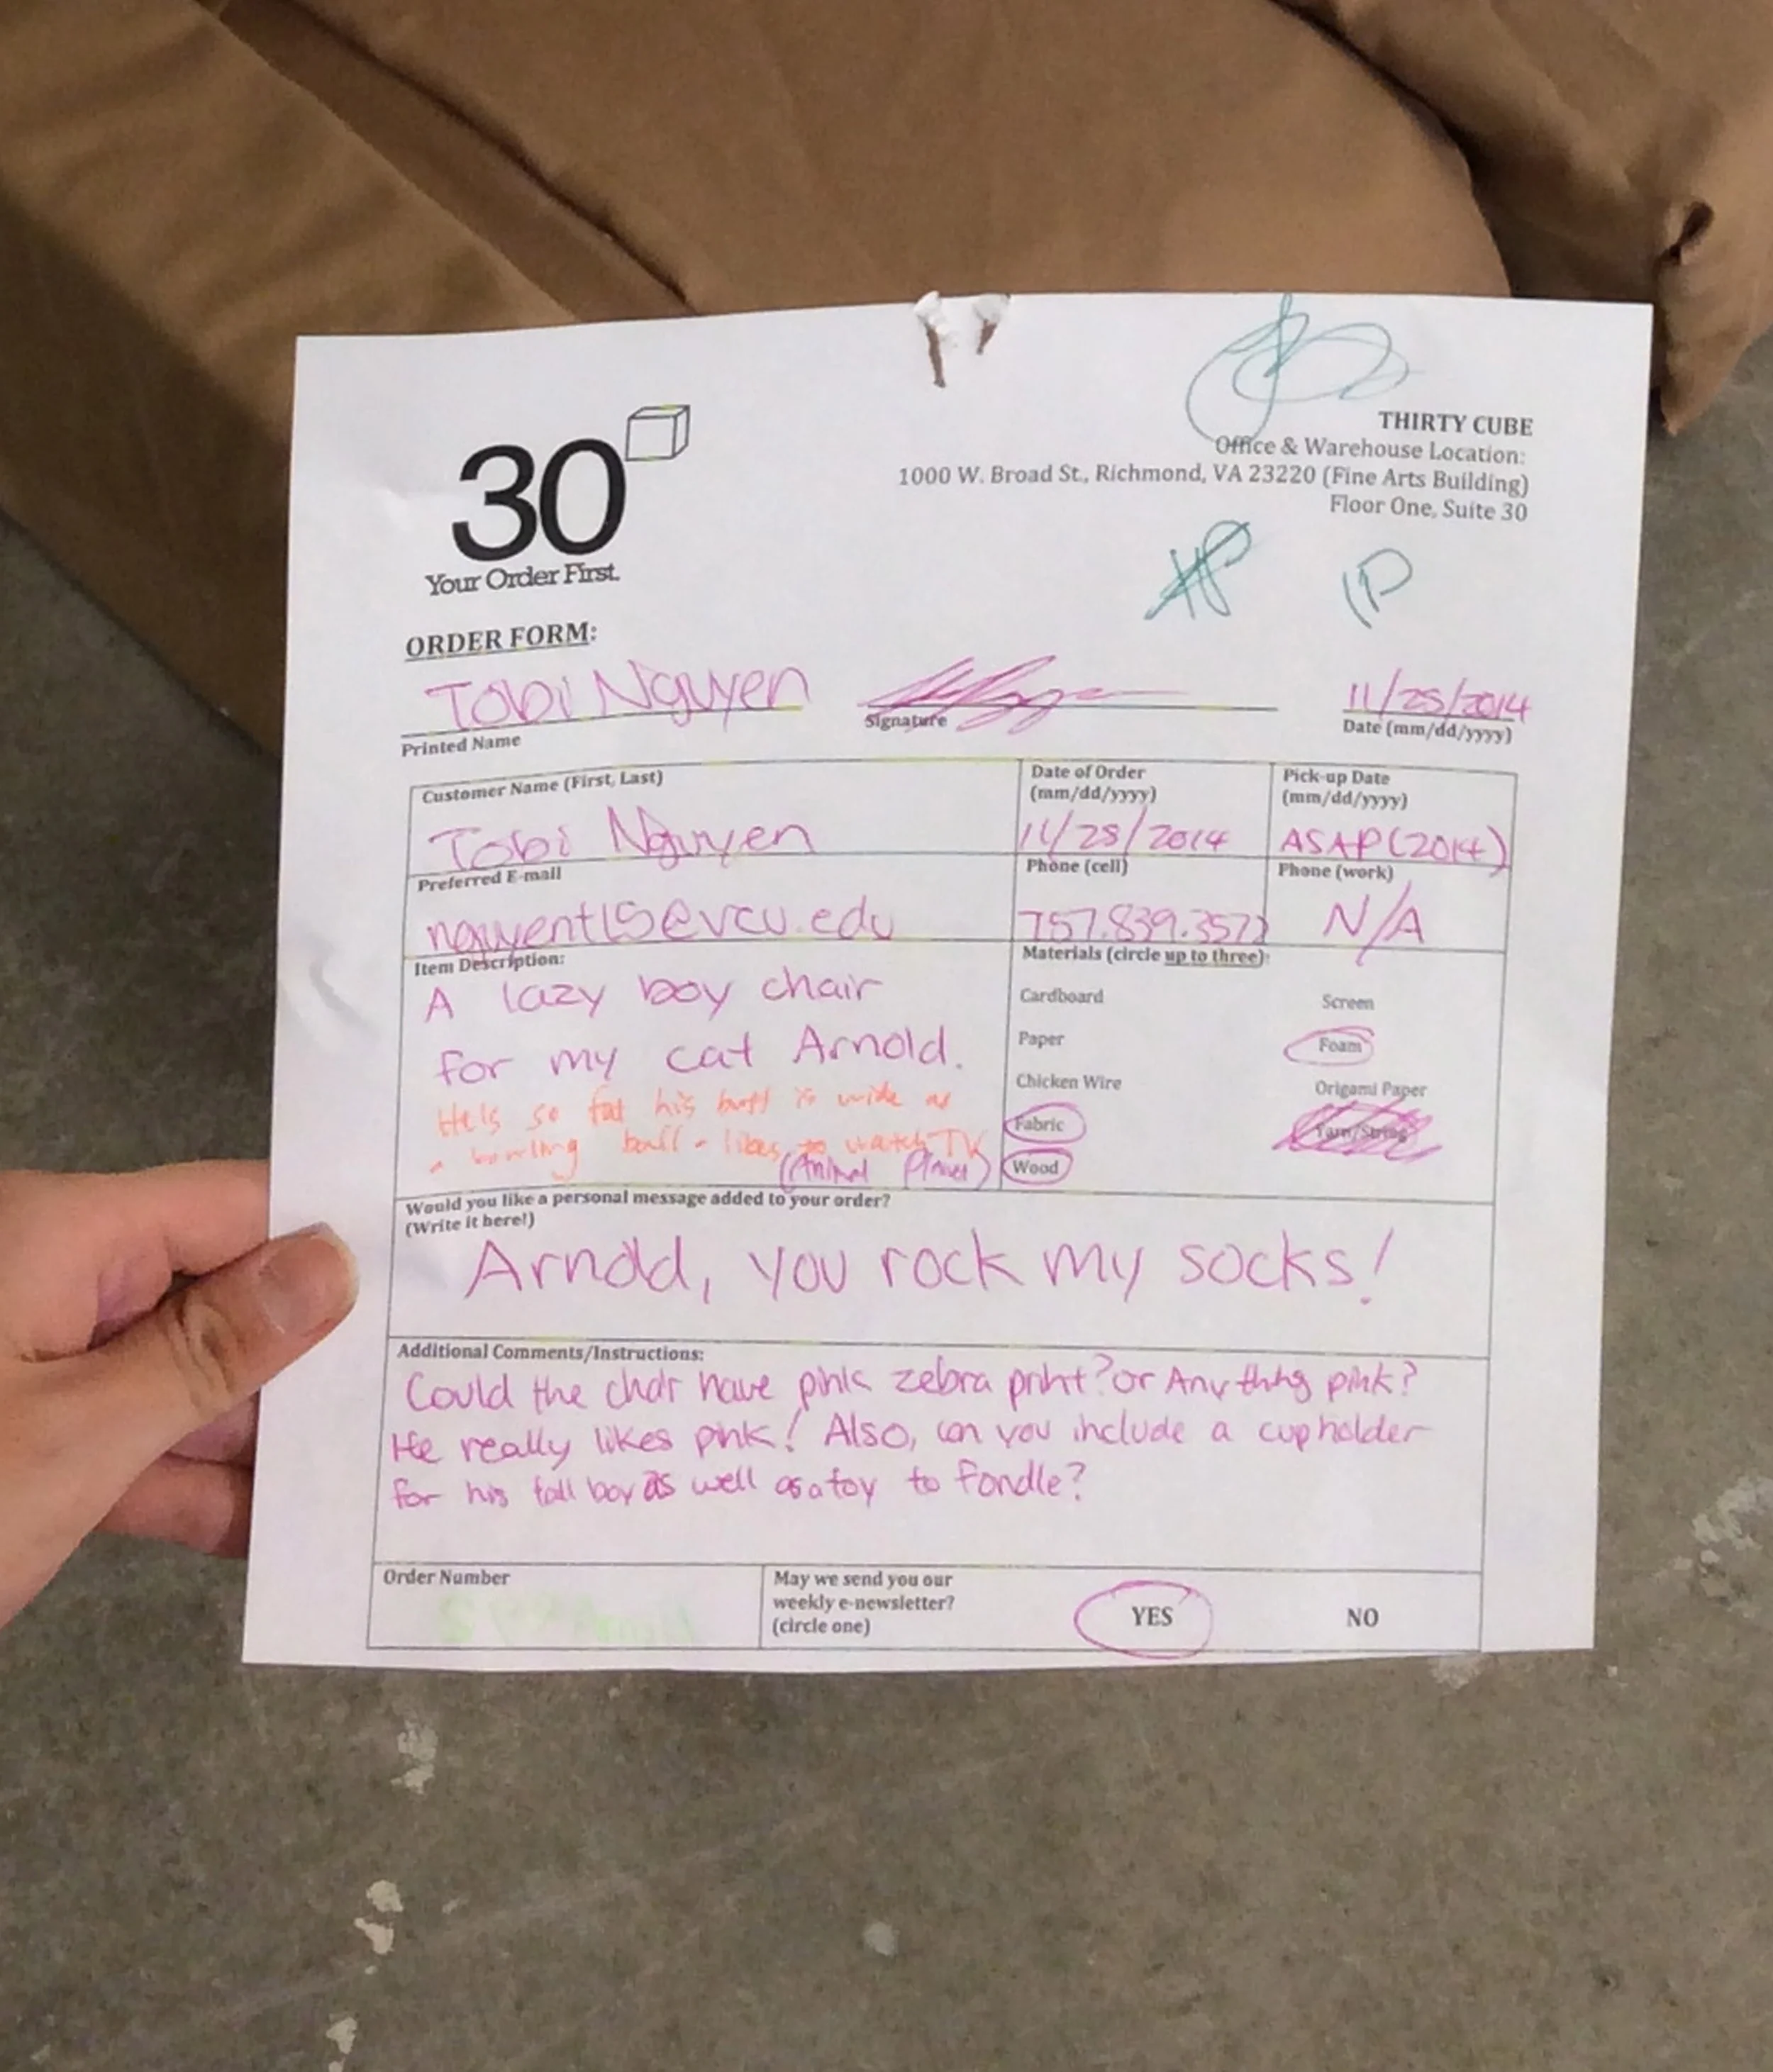 30
Your Order First.
THIRTY CUBE
Office & Warehouse Location:
1000 W. Broad St., Richmond, VA 23220 (Fine Arts Building)
Floor One, Suite 30
ORDER FORM:
Tobi Nguyen
11/25/2014
Printed Name
Signature
Date (mm/dd/yyyy)
Customer Name (First, Last)
Tobi Nguyen
Date of Order
(mm/dd/yyyy)
11/25/2014
Pick-up Date
(mm/dd/yyyy)
ASAP (2014)
Preferred E-mail
nguyent15@vcu.edu
Phone (cell)
757.839.3572
Phone (work)
N/A
Item Description:
A lazy boy chair
for my cat Arnold.
He is so fat his butt is wide as
a bowling ball - likes to watch TV
(Animal Planet)
Materials (circle up to three):
Cardboard
Screen
Paper
Foam
Chicken Wire
Origami Paper
Fabric
Yarn/String
Wood
Would you like a personal message added to your order?
(Write it here!)
Arnold, you rock my socks!
Additional Comments/Instructions:
Could the chair have pink zebra print? or Anything pink?
He really likes pink! Also, can you include a cupholder
for his tall boy as well as a toy to fondle?
Order Number
May we send you our
weekly e-newsletter?
(circle one)
YES
NO